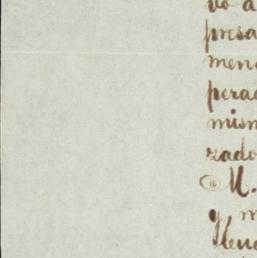 vo a
presa
mene
perac
mism
rado
M.
y m
llend